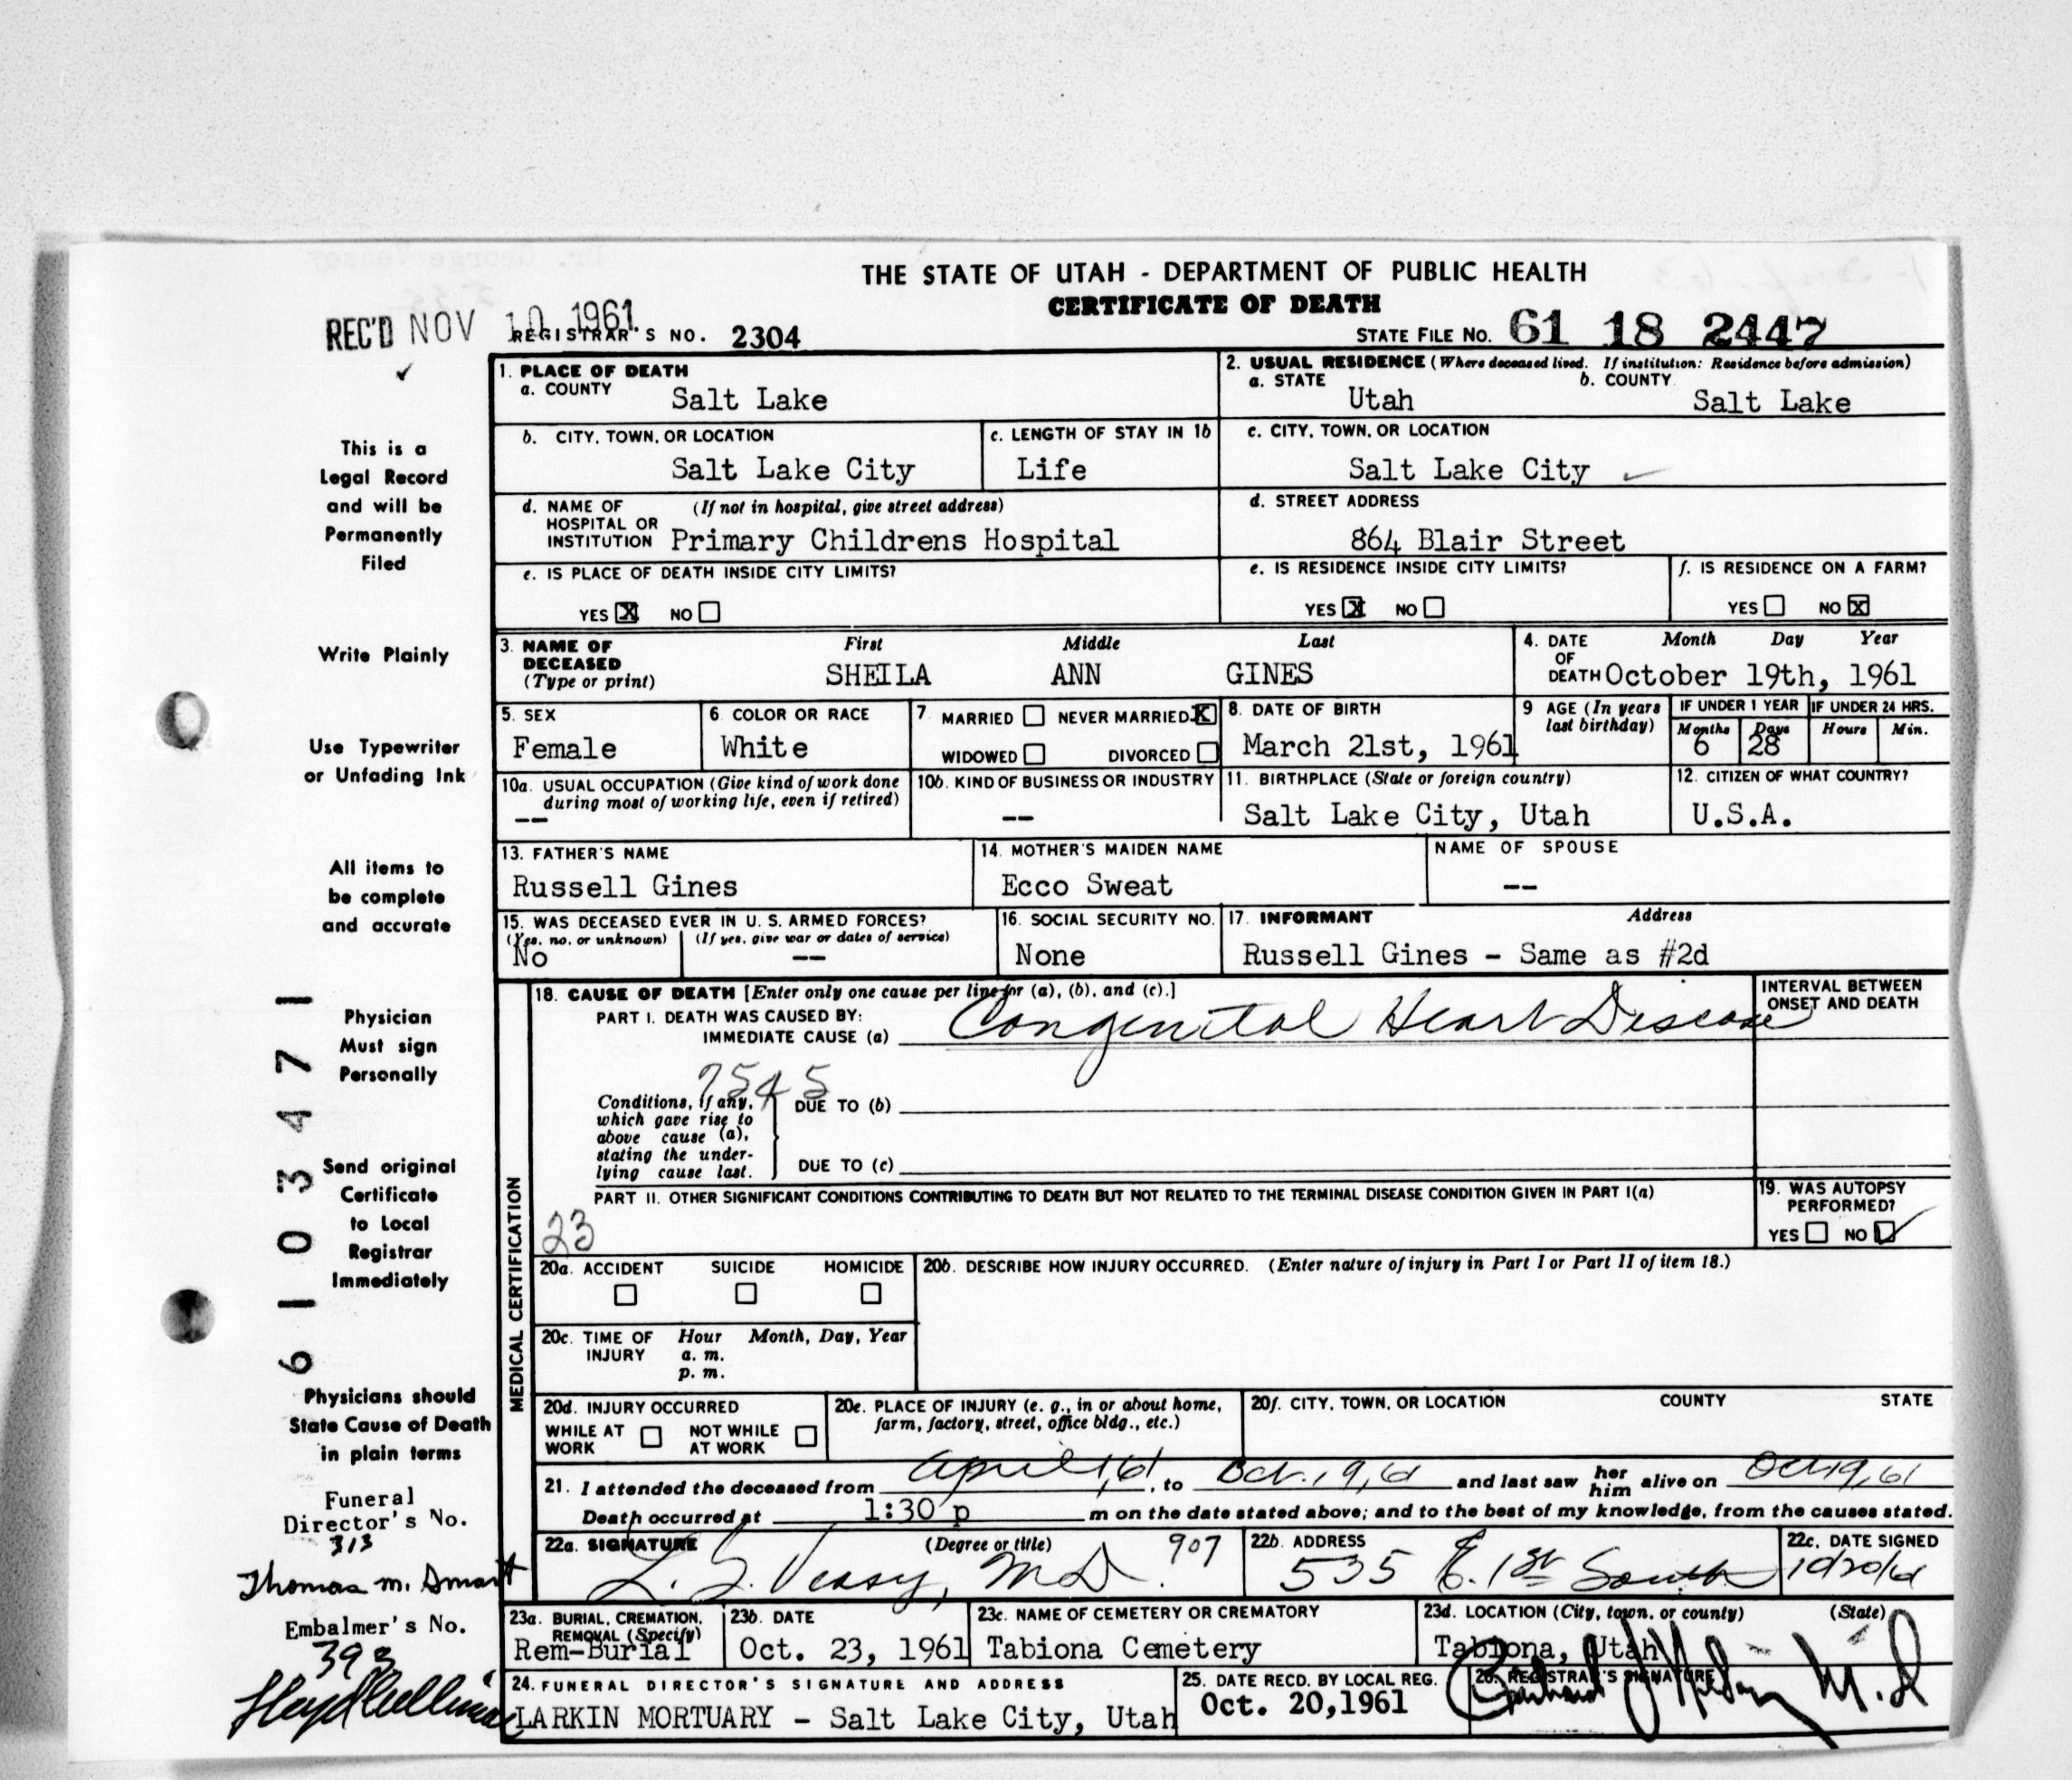 THE STATE OF UTAH - DEPARTMENT OF PUBLIC HEALTH
CERTIFICATE OF DEATH
REC'D NOV 10 1961
REGISTRAR'S NO. 2304
STATE FILE NO. 61 18 2447
1. PLACE OF DEATH
a. COUNTY Salt Lake
2. USUAL RESIDENCE (Where deceased lived. If institution: Residence before admission)
a. STATE Utah b. COUNTY Salt Lake
b. CITY, TOWN, OR LOCATION Salt Lake City
c. LENGTH OF STAY IN 1b Life
c. CITY, TOWN, OR LOCATION Salt Lake City
d. NAME OF HOSPITAL OR INSTITUTION (If not in hospital, give street address) Primary Childrens Hospital
d. STREET ADDRESS 864 Blair Street
e. IS PLACE OF DEATH INSIDE CITY LIMITS?
YES X NO
e. IS RESIDENCE INSIDE CITY LIMITS?
YES X NO
f. IS RESIDENCE ON A FARM?
YES NO X
3. NAME OF DECEASED (Type or print) First Middle Last
SHEILA ANN GINES
4. DATE OF DEATH Month Day Year
October 19th, 1961
5. SEX Female
6. COLOR OR RACE White
7. MARRIED NEVER MARRIED X
WIDOWED DIVORCED
8. DATE OF BIRTH March 21st, 1961
9 AGE (In years last birthday)
IF UNDER 1 YEAR Months 6 Days 28
IF UNDER 24 HRS. Hours Min.
10a. USUAL OCCUPATION (Give kind of work done during most of working life, even if retired) --
10b. KIND OF BUSINESS OR INDUSTRY --
11. BIRTHPLACE (State or foreign country) Salt Lake City, Utah
12. CITIZEN OF WHAT COUNTRY? U.S.A.
13. FATHER'S NAME Russell Gines
14. MOTHER'S MAIDEN NAME Ecco Sweat
NAME OF SPOUSE --
15. WAS DECEASED EVER IN U. S. ARMED FORCES?
(Yes, no. or unknown) No (If yes, give war or dates of service) --
16. SOCIAL SECURITY NO. None
17. INFORMANT Address
Russell Gines - Same as #2d
18. CAUSE OF DEATH [Enter only one cause per line for (a), (b), and (c).]
PART I. DEATH WAS CAUSED BY:
IMMEDIATE CAUSE (a) Congenital Heart Disease
INTERVAL BETWEEN ONSET AND DEATH
7545
Conditions, if any, which gave rise to above cause (a), stating the underlying cause last.
DUE TO (b)
DUE TO (c)
PART II. OTHER SIGNIFICANT CONDITIONS CONTRIBUTING TO DEATH BUT NOT RELATED TO THE TERMINAL DISEASE CONDITION GIVEN IN PART I(a)
23
19. WAS AUTOPSY PERFORMED?
YES NO ✓
20a. ACCIDENT SUICIDE HOMICIDE
20b. DESCRIBE HOW INJURY OCCURRED. (Enter nature of injury in Part I or Part II of item 18.)
20c. TIME OF INJURY Hour Month, Day, Year
a. m.
p. m.
20d. INJURY OCCURRED
WHILE AT WORK NOT WHILE AT WORK
20e. PLACE OF INJURY (e. g., in or about home, farm, factory, street, office bldg., etc.)
20f. CITY, TOWN, OR LOCATION COUNTY STATE
21. I attended the deceased from April 1, 61, to Oct. 19, 61 and last saw her him alive on Oct 19, 61
Death occurred at 1:30 p m on the date stated above; and to the best of my knowledge, from the causes stated.
22a. SIGNATURE (Degree or title) 907
L. G. Veasy, MD.
22b. ADDRESS 535 E. 1st South
22c. DATE SIGNED 10/20/61
23a. BURIAL, CREMATION, REMOVAL (Specify) Rem-Burial
23b. DATE Oct. 23, 1961
23c. NAME OF CEMETERY OR CREMATORY Tabiona Cemetery
23d. LOCATION (City, town, or county) (State) Tabiona, Utah
24. FUNERAL DIRECTOR'S SIGNATURE AND ADDRESS
LARKIN MORTUARY - Salt Lake City, Utah
25. DATE RECD. BY LOCAL REG. Oct. 20,1961
26. REGISTRAR'S SIGNATURE M.D
MEDICAL CERTIFICATION
This is a
Legal Record
and will be
Permanently
Filed
Write Plainly
Use Typewriter
or Unfading Ink
All items to
be complete
and accurate
Physician
Must sign
Personally
Send original
Certificate
to Local
Registrar
Immediately
Physicians should
State Cause of Death
in plain terms
61 03471
Funeral
Director's No.
313
Thomas M. Smart
Embalmer's No.
393